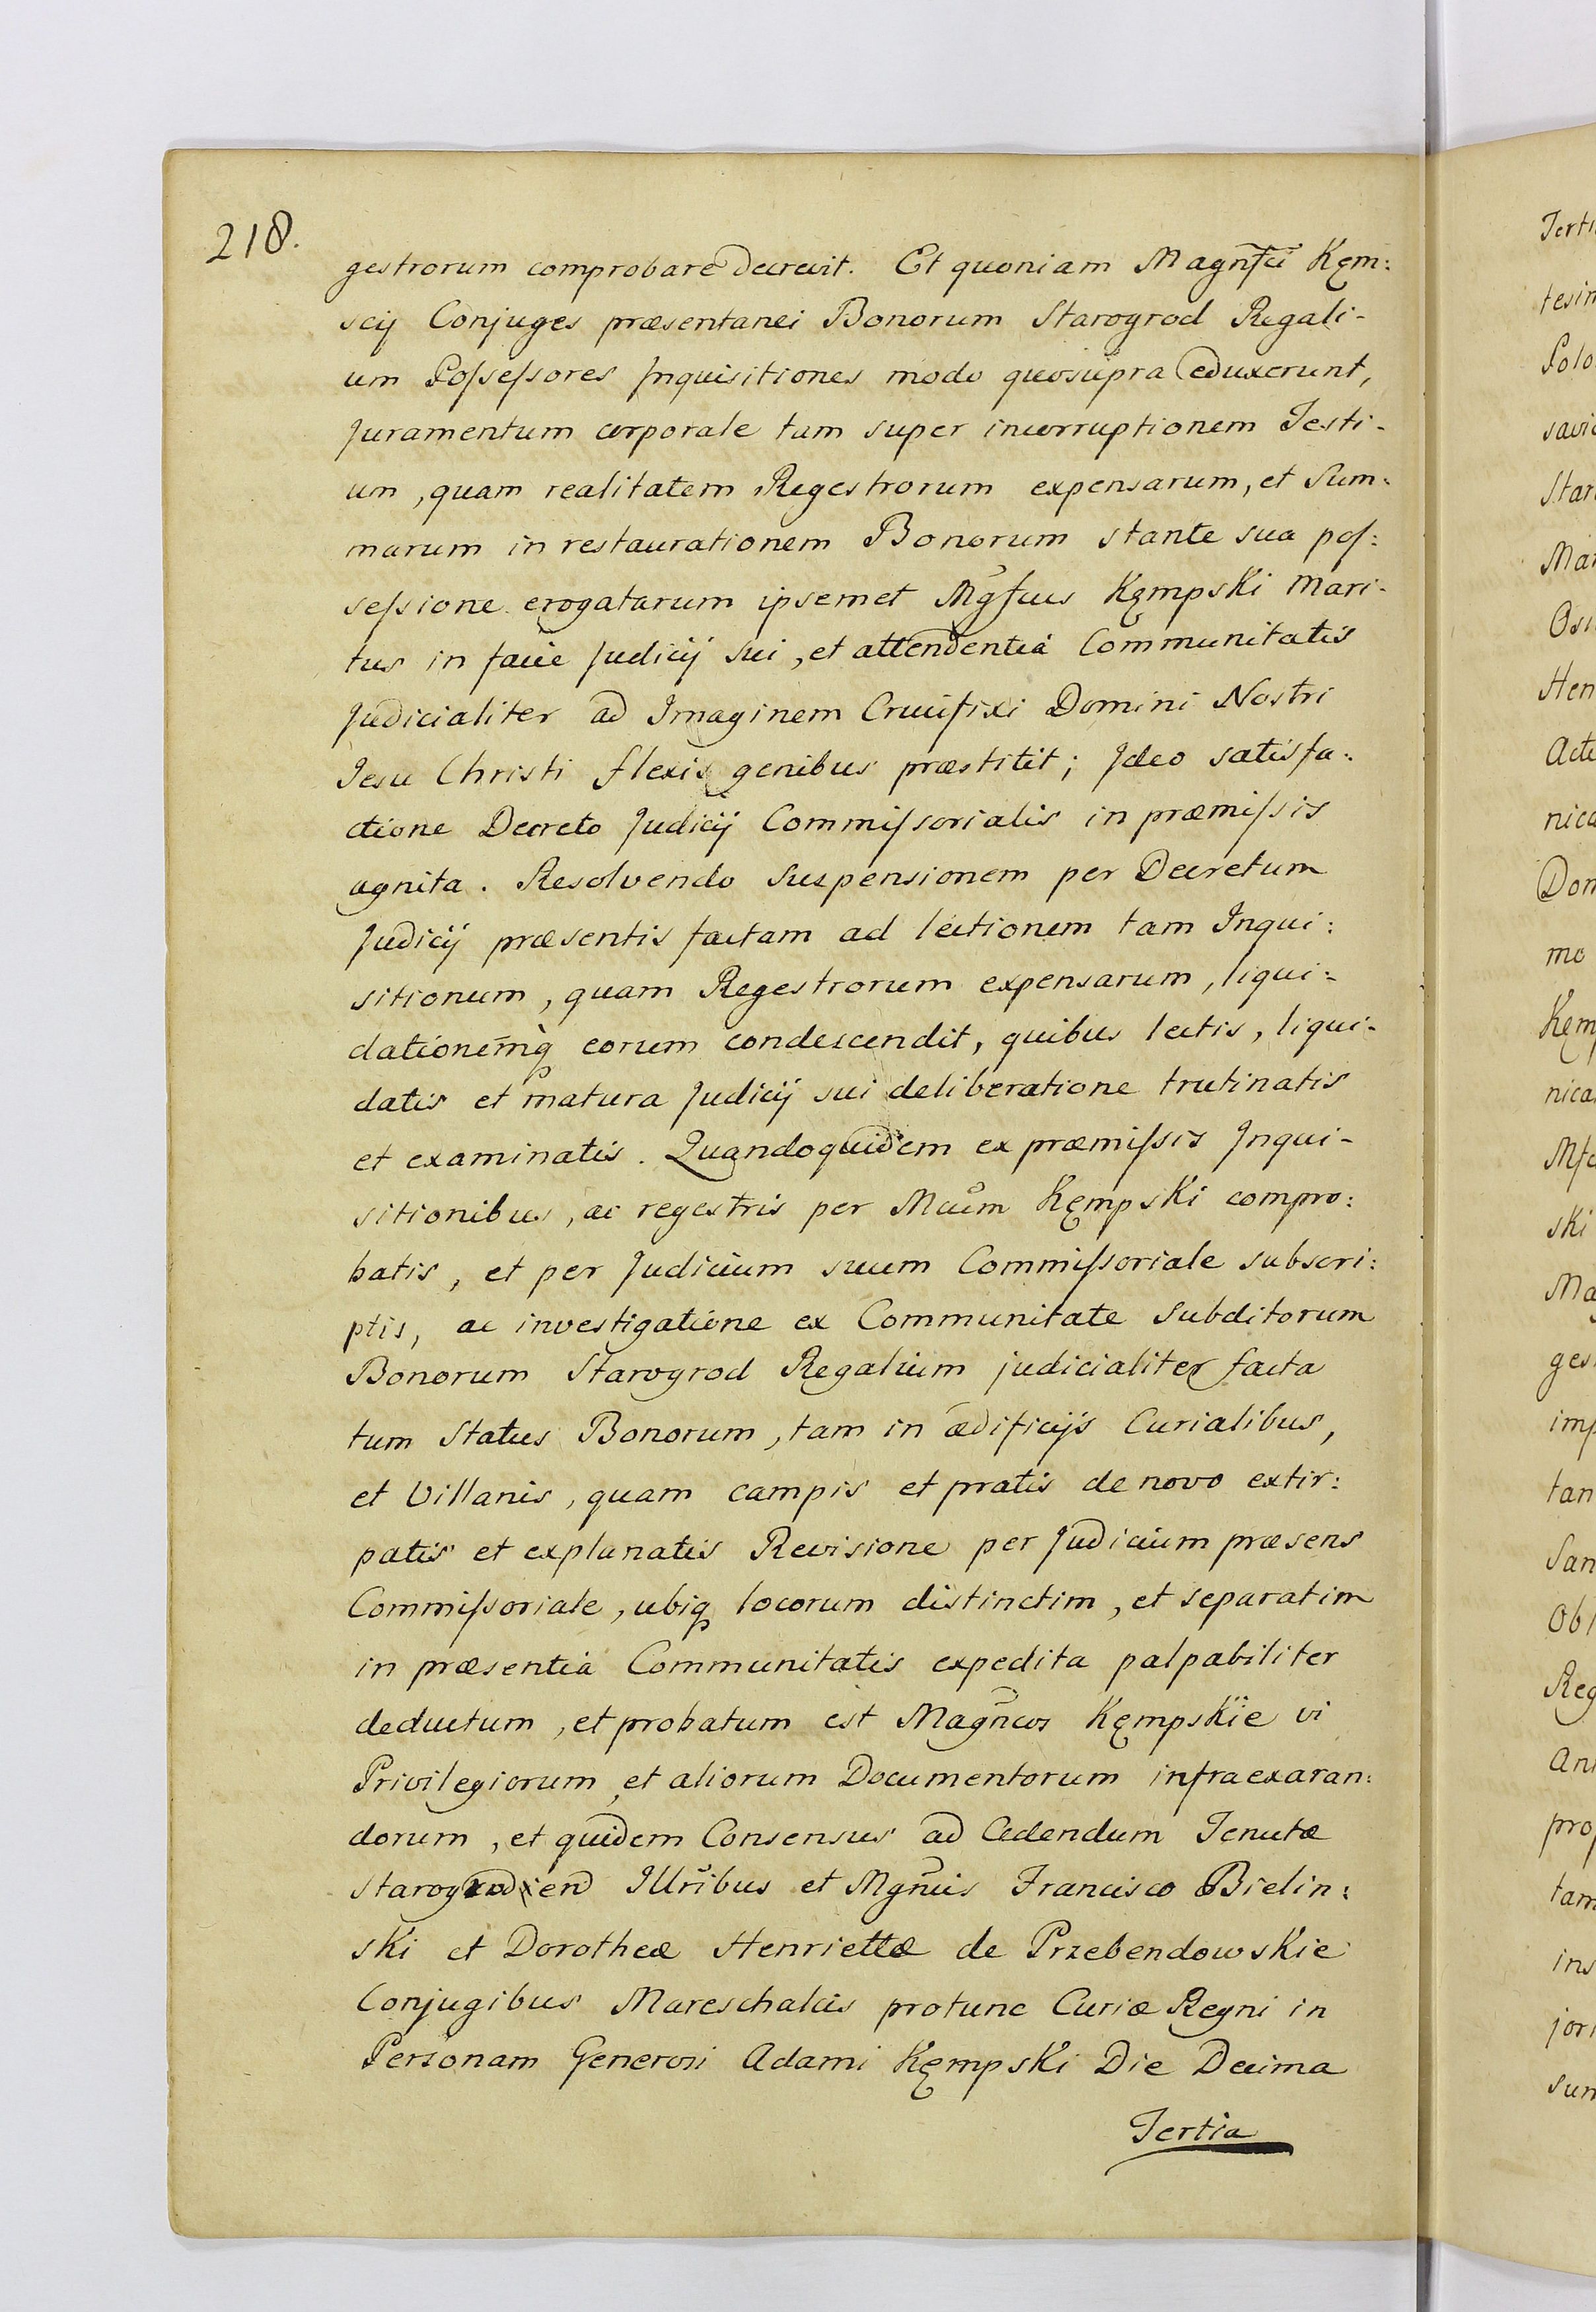 218.
gestrorum comprobare decrevit. Et quoniam Magnfci Kęm:
scij Conjuges præsentanei Bonorum Starogrod Regali-
um Poſseſsores Inquisitiones modo quosupra eduxerunt,
Juramentum corporale tam super incorruptionem Testi-
um, quam realitatem Regestrorum expensarum, et Sum-
marum in restaurationem Bonorum stante sua poſ:
seſsione erogatarum ipsemet Mgfcus Kęmpski Mari-
tus in facie Judicij sui, et attendentia Communitatis
Judicialiter ad Imaginem Crucifixi Domini Nostri
Jesu Christi flexis genibus præstitit; Ideo satisfa:
ctione Decreto Judicij Commiſsorialis in præmiſsis
agnita. Resolvendo Suspensionem per Decretum
Judicij præsentis factam ad lectionem tam Inqui:
sitionum, quam Regestrorum expensarum, liqui-
dationemq̀ eorum condescendit, quibus lectis, liqui-
datis et matura Judicij sui deliberatione trutinatis
et examinatis. Quandoquidem ex præmiſsis Inqui-
sitionibus, ac regestris per Mcum Kęmpski compro:
batis, et per Judicium suum Commiſsoriale subscri:
ptis, ac investigatione ex Communitate Subditorum
Bonorum Starogrod Regalium judicialiter facta
tum Status Bonorum, tam in ædificijs Curialibus,
et Villanis, quam campis et pratis de novo extir:
patis et explanatis Revisione per Judicium præsens
Commiſsoriale, ubiq locorum distinctim, et separatim
in præsentia Communitatis expedita palpabiliter
deductum, et probatum est Magncos Kęmpskie vi
Privilegiorum, et aliorum Documentorum infraexaran:
dorum, et quidem Consensus ad Cedendum Tenutæ
Starogrodien Illribus et Mgncis Francisco Bielin:
ski et Dorotheæ Henriettæ de Przebendowskie
Conjugibus Mareschalcis protunc Curiæ Regni in
Personam Generosi Adami Kęmpski Die Decima
Tertia
Terti
tesin
Polo
savi
Star
Mar
Osi
Hen
Acte
nica
Don
mo
Kęm
nica
Mfc
ski
Ma
ges
imp
tan
San
Obl
Reg
An
prop
tam
ins
jori
sum